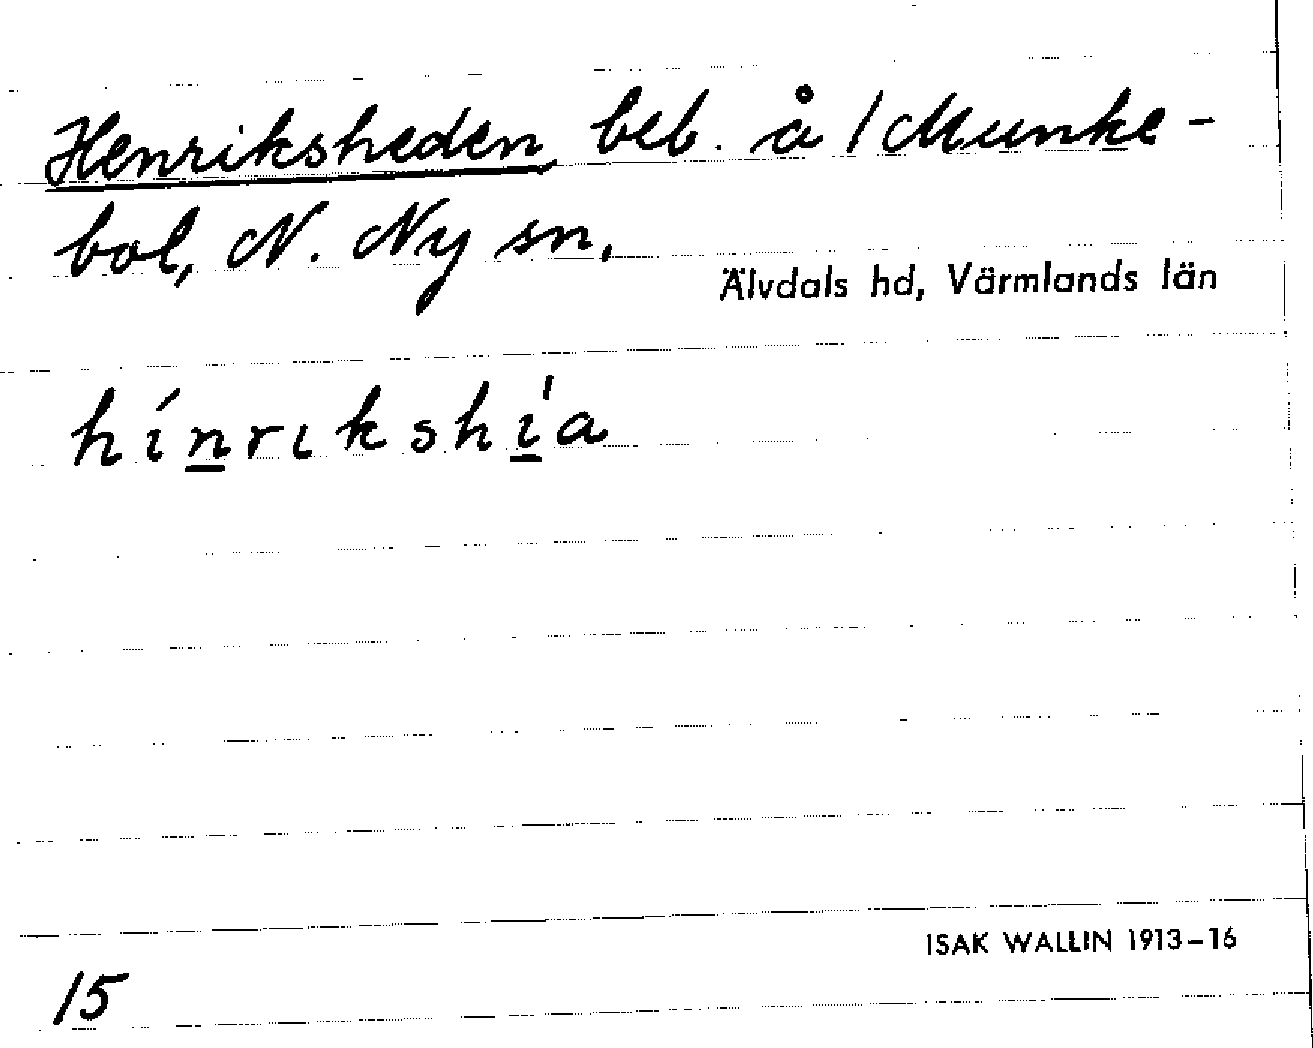 Henriksheden, beb. å 1 Munke-
bol, N. Ny sn,
Älvdals hd, Värmlands län
hínrıkshi̠ˈa
ISAK WALLIN 1913–16
15